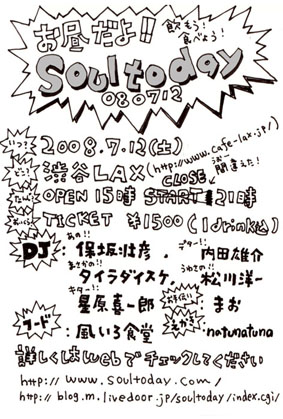 お昼だよ!!
飲もう!
食べよう!
Soul today
080712
いつ? 2008.7.12(土)
どこ? 渋谷LAX (http://www.cafe-lax.jp/)
CLOSE 間違えた!
OPEN 15時 START 21時
TICKET ¥1500(1drink込)
あの!! デター!!
DJ : 保坂壮彦 . 内田雄介
まさかの!! うわさの!!
タイラダイスケ. 松川洋一
キター!! お手伝い
星原喜一郎 まお
フード : 風いろ食堂 えがき natunatuna
詳しくはwebでチェックしてください
http:// www.soultoday.com/
http:// blog.m.livedoor.jp/soultoday/index.cgi/